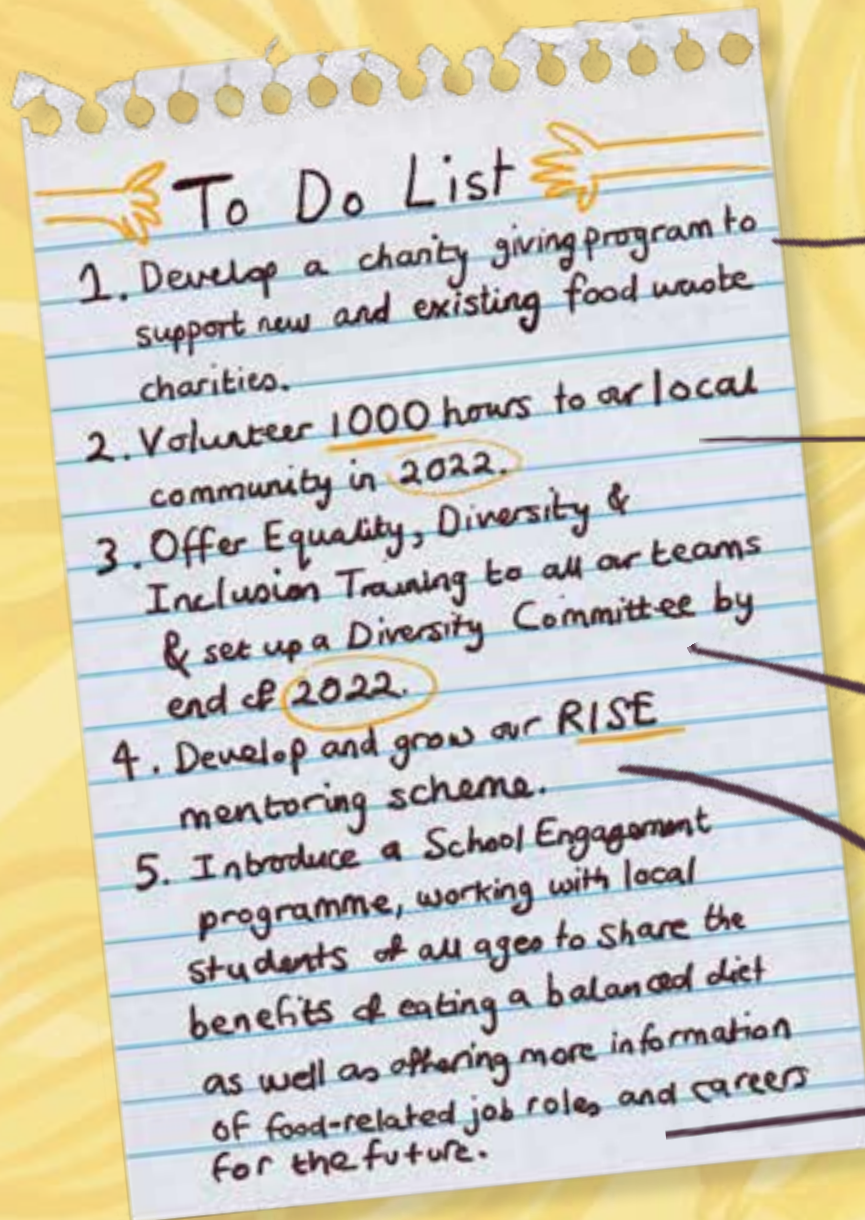 To Do List
1. Develop a charity giving program to
support new and existing food waste
charities.
2. Volunteer 1000 hours to our local
community in 2022.
3. Offer Equality, Diversity &
Inclusion Training to all our teams
& set up a Diversity Committee by
end of 2022.
4. Develop and grow our RISE
mentoring scheme.
5. Introduce a School Engagement
programme, working with local
students of all ages to share the
benefits of eating a balanced diet
as well as offering more information
of food-related job roles and careers
for the future.